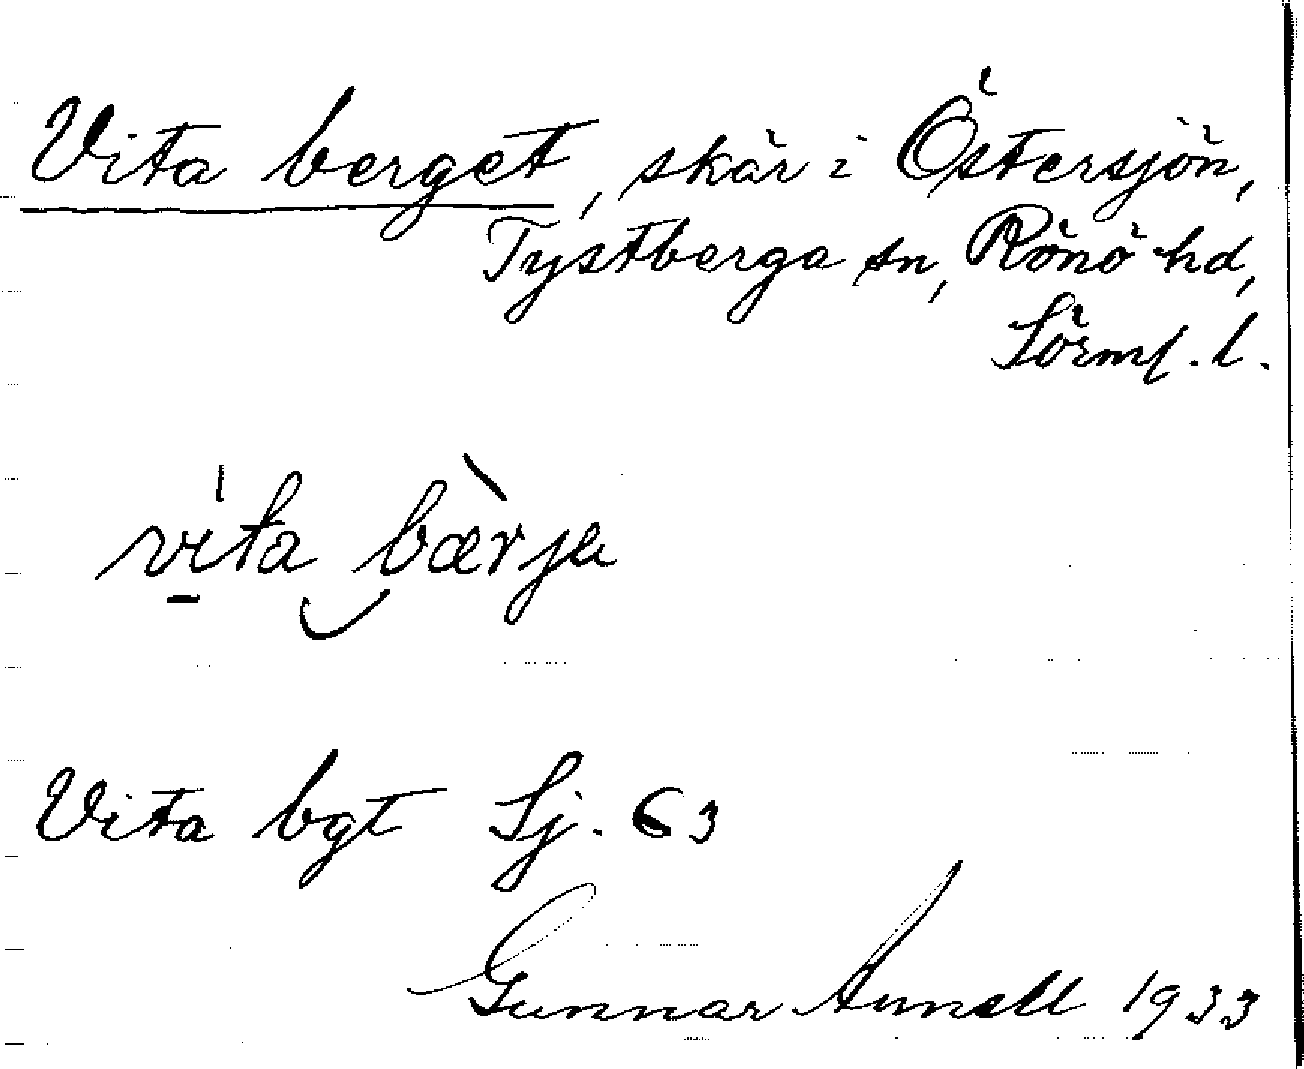 Vita berget, skär i Östersjön,
Tystberga sn, Rönö hd,
Sörml. l.
vita bærja
Vita bgt Sj. 63
Gunnar 1933